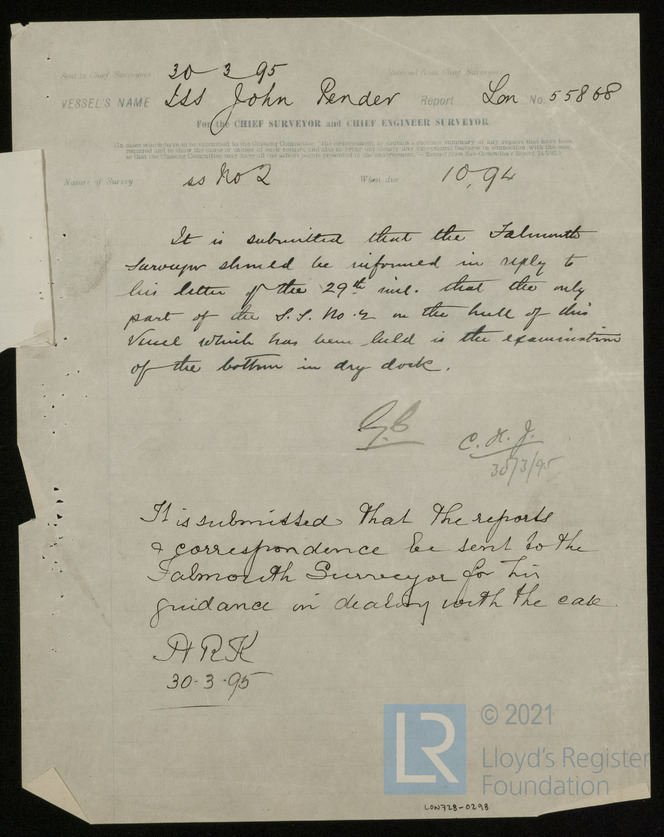 Sent to Chief Surveyors 30 3 95 Received from Chief Surveyors
VESSEL'S NAME SSS John Pender Report Lon No. 55868
For the CHIEF SURVEYOR and CHIEF ENGINEER SURVEYOR
Nature of Survey SS No 2 When due 10,94
It is submitted that the Falmouth
Surveyor should be informed in reply to
his letter of the 29th inst. that the only
part of the S.S. No. 2 on the hull of this
Vessel which has been held is the examination
of the bottom in dry dock.
C. H. J.
30/3/95
It is submitted that the reports
& correspondence be sent to the
Falmouth Surveyor for his
guidance in dealing with the case
H R K
30-3-95
LR
© 2021
Lloyd's Register
Foundation
LON728-0298